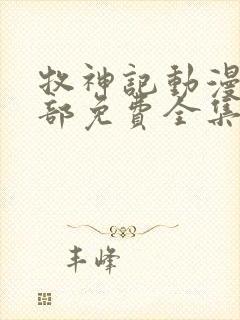 牧神記動漫
部免費全集
丰峰